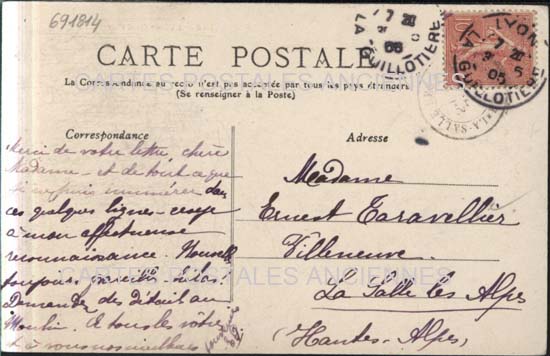 691814
CARTE POSTALE
La Correspondance au recto n'est pas acceptée par tous les pays étrangers
(Se renseigner à la Poste)
CARTES POSTALES ANCIENNES
LYON
LA GUILLOTIERE
7 05
LYON
7 05
LA GUILLOTIERE
10
LA-SALLE
Correspondance
Adresse
Merci de votre lettre, chère
Madame - et de tout ce que
je ne puis énumérer dans
ces quelques lignes - croyez
à mon affectueuse
reconnaissance. Nouvelles
toujours pareilles hélas.
Demandez des détails au
Moulin. A tous les vôtres
et à vous nos meilleurs
Madame
Ernest Taravellier
Villeneuve.
La Salle les Alpes
(Hautes-Alpes)
CARTES POSTALES ANCIENNES